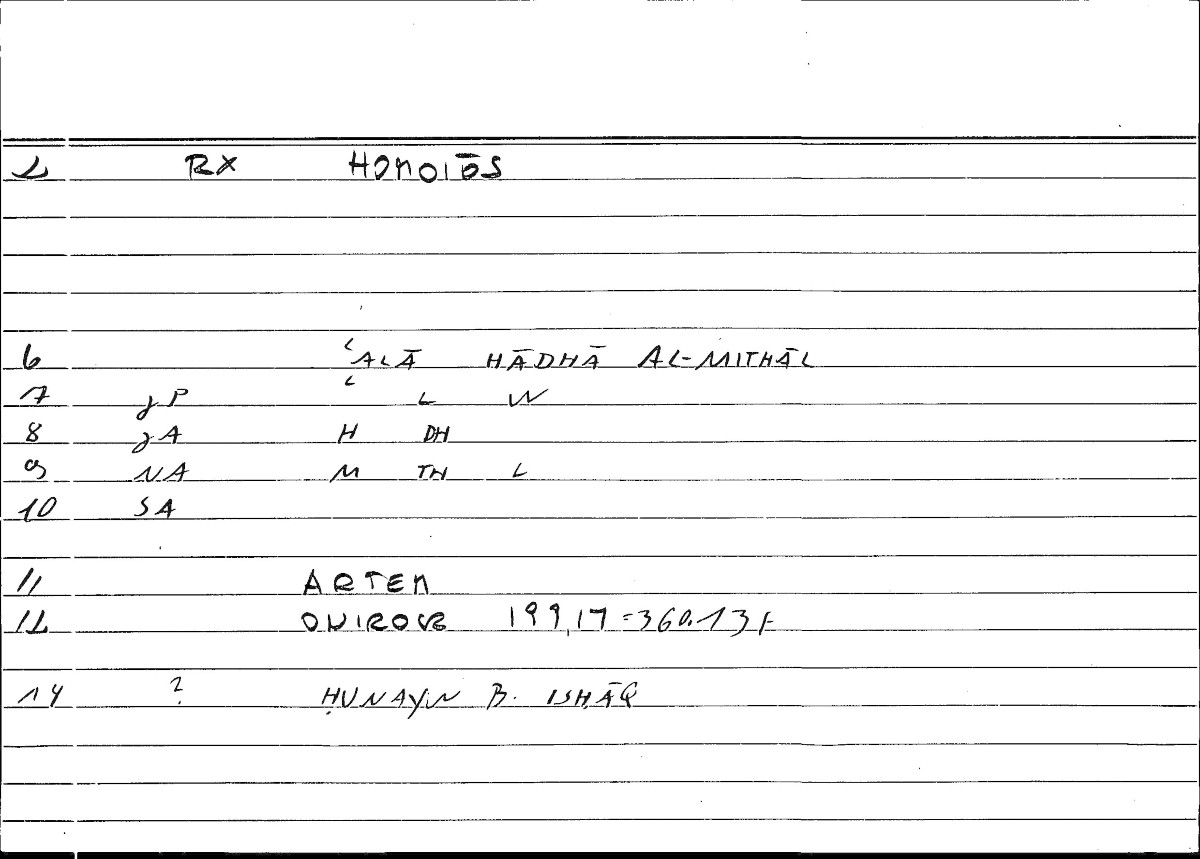 2 RX HOMOIŌS
6 ʿALĀ HĀDHĀ AL-MITHĀL
7 gP ʿ L W
8 gA H DH
9 NA M TH L
10 SA
11 ARTEM
12 ONIROCR 199,17=360.13F
14 ? ḤUNAYN B. ISḤĀQ